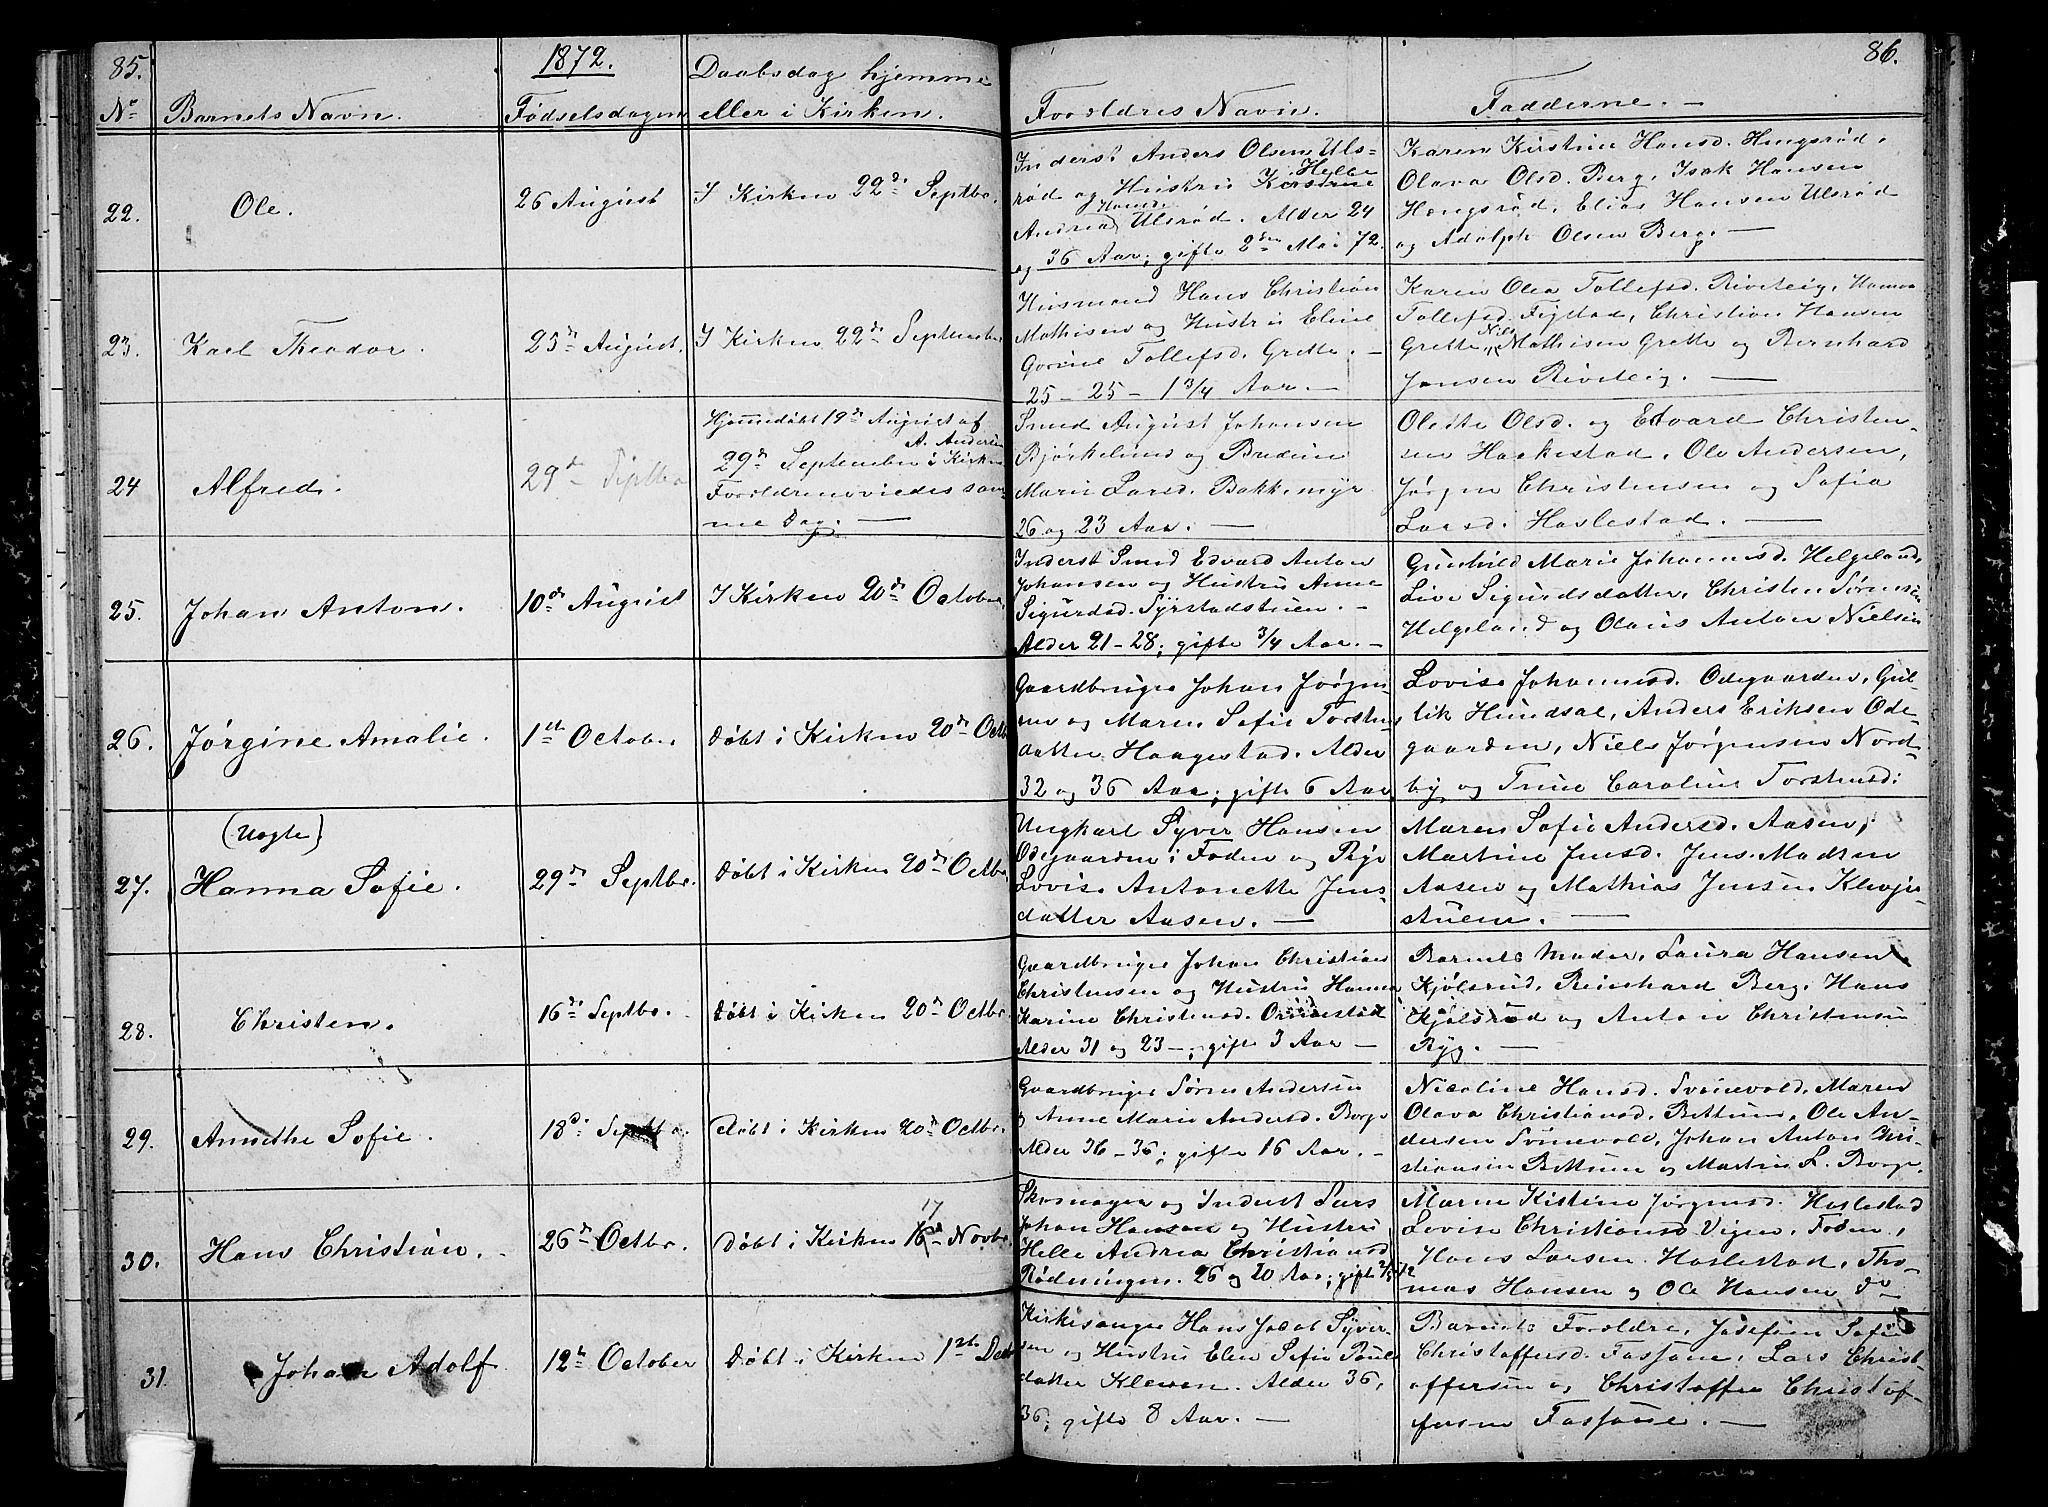 85.
1872.
Daabsdag hjemme
86.
No
Barnets Navn.
Fødselsdagen
eller i Kirken.
Forældres Navn.
Fadderne. —
22.
Ole.
26 August
I Kirken 22de Septbr.
Inderst Anders Olsen Uls-
Helle
rød og Hustru Kirstine
Hansd.
Andrea Ulsrød. Alder 24
og 36 Aar, gifte 2den Mai 72.
Karen Kirstine Hansd. Hengsrød,
Olava Olsd. Berg, Isak Hansen
Hengsrød, Elias Hansen Ulsrød
og Adolph Olsen Berg. —
23.
Karl Theodor.
23de August.
I Kirken 22de September
Husmand Hans Christian
Mathisen og Hustru Eline
Gorine Tollefsd. Grette. —
25 — 25 — 1 3/4 Aar. —
Karen Olea Tollefsd. Riveteig, Hanna
Tollefsd. Figstad, Christian Hansen
Nils
Grette, Mathisen Grette og Bernhard
Jansen Riveteig. —
24
Alfred.
29de Septbr
Hjemmedøbt 19de August af
A. Andersen
29de September i Kirken
Forældrene viedes sam-
me Dag. —
Smed August Johansen
Bjørkelund og Budeie
Marie Larsd. Bakkemyr
26 og 23 Aar. —
Oledte Olsd. og Edvard Christen-
sen Haskestad, Ole Andersen,
Jørgen Christensen og Sofia
Larsd. Haslestad. —
25.
Johan Anton.
10de August
I Kirken 20de October,
Inderst Smed Edvard Anton
Johansen og Hustru Anne
Sigurdsd. Syrstadstuen. —
Alder 21 — 28, gifte 3/4 Aar. —
Gunhild Marie Johannesd. Helgeland,
Live Sigurdsdatter, Christen Sørensen
Helgeland og Olaus Anton Nielsen
26.
Jørgine Amalie.
1ste October
Døbt i Kirken 20de Octb
Gaardbruger Johan Jørgen-
sen og Maren Sofie Torstens
datter Haagestad. Alder
32 og 36 Aar, gifte 6 Aar,
Lovise Johannesd. Ødegaarden, Gul-
lik Hundsal, Anders Eriksen Øde-
gaarden, Niels Jørgensen Nord-
by og Trine Caroline Torstensd.
(Uægte)
27.
Hanna Sofie.
29de Septbr.
Døbt i Kirken 20de Octbr.
Ungkarl Syver Hansen
Ødegaarden i Foden og Pige
Lovise Antonette Jens-
datter Aasen. —
Maren Sofie Andersd. Aasen,
Martine Jensd. Jens Madsen
Aasen og Mathias Jensen Klevje-
stuen. —
28.
Christen.
16de Septbr.
Døbt i Kirken 20de Octbr.
Gaardbruger Johan Christian
Christensen og Hustru Hanna
Karine Christensd. Orrestad
Alder 31 og 23 —, gifte 3 Aar —
Barnets Moder, Laura Hansen
Kjølsrud, Reinhard Berg, Hans
Kjølsrød og Anton Christensen
Ryg. —
29.
Annethe Sofie.
18de Septbr.
Døbt i Kirken 20de Octbr.
Gaardbruger Søren Andersen
og Anne Marie Andersd. Borge
Alder 36 — 36, gifte 16 Aar. —
Nicoline Hansd. Svinevold, Maren
Olava Christiansd. Bettum, Ole An-
dersen Svinevold, Johan Anton Chri-
stiansen Bettum og Martin L. Borge.
30.
Hans Christian.
26de Octbr.
17
Døbt i Kirken 16de Novbr.
Skomager og Inderst Lars
Johan Hansen og Hustru
Helle Andrea Christiansd.
Rødningen. 26 og 20 Aar, gifte 2/5 72
Maren Kistine Jørgensd. Haslestad
Lovise Christiansd. Vigen, Foden,
Hans Larsen Haslestad, Tho-
mas Hansen og Ole Hansen do
31.
Johan Adolf
12te October
Døbt i Kirken 1ste Decbr
Kirkesanger Hans Jacob Syver-
sen og Hustru Elen Sofie Pauls
datter Kleven. Alder 36,
36, gifte 8 Aar. —
Barnets Forældre, Josefien Sofie
Christoffersd. Fossane, Lars Christ-
offersen og Christoffer Christof-
fersen Fossane. —